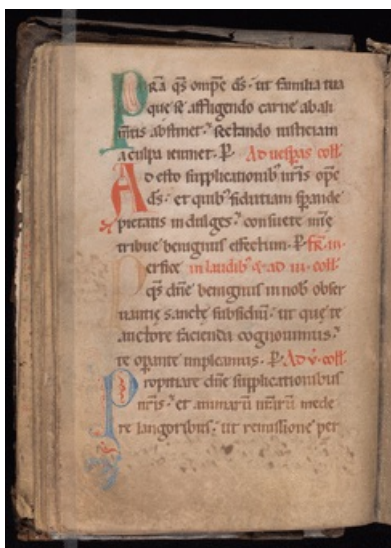 PRA qs omps ds. ut familia tua
que se affligendo carne ab ali
mtis abstinet. sectando iusticiam
a culpa ieiunet. P. Ad uespas coll.
Ad esto supplicationib nris ops
ds. et quib fidutiam sperande
pietatis indulges. consuete mie
tribue benignus effectum. P. FR. III.
Perfice in laudib & ad III. coll.
qs dne benignus in nob obser
uantie sancte subsidiu. ut que te
auctore facienda cognouimus.
te operante impleamus. P. Ad V. coll.
Propitiare dne supplicationibus
nris. et animaru nraru mede
re langoribus. ut remissione per